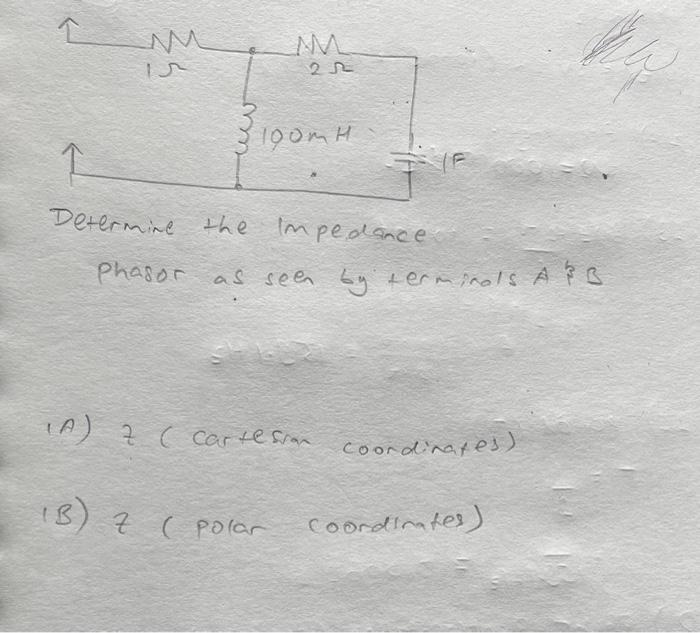 1Ω
2Ω
100mH
1F
Determine the Impedance
phasor as seen by terminals A & B
1A) z ( cartesian coordinates)
1B) z ( polar coordinates)